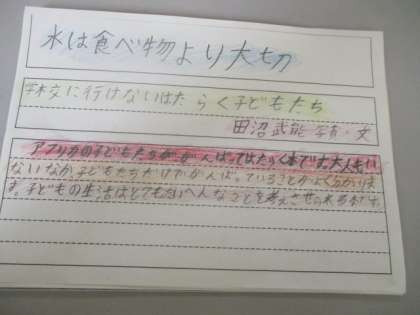 水は食べ物より大切
学校に行けないはたらく子どもたち
田沼武能 写真・文
アフリカの子どもたちががんばってはたらく本です。大人もい
ないなか、子どもたちだけでがんばっていることがよくわかりま
す。子どもの生活はとてもたいへんなことを考えさせられる本です。